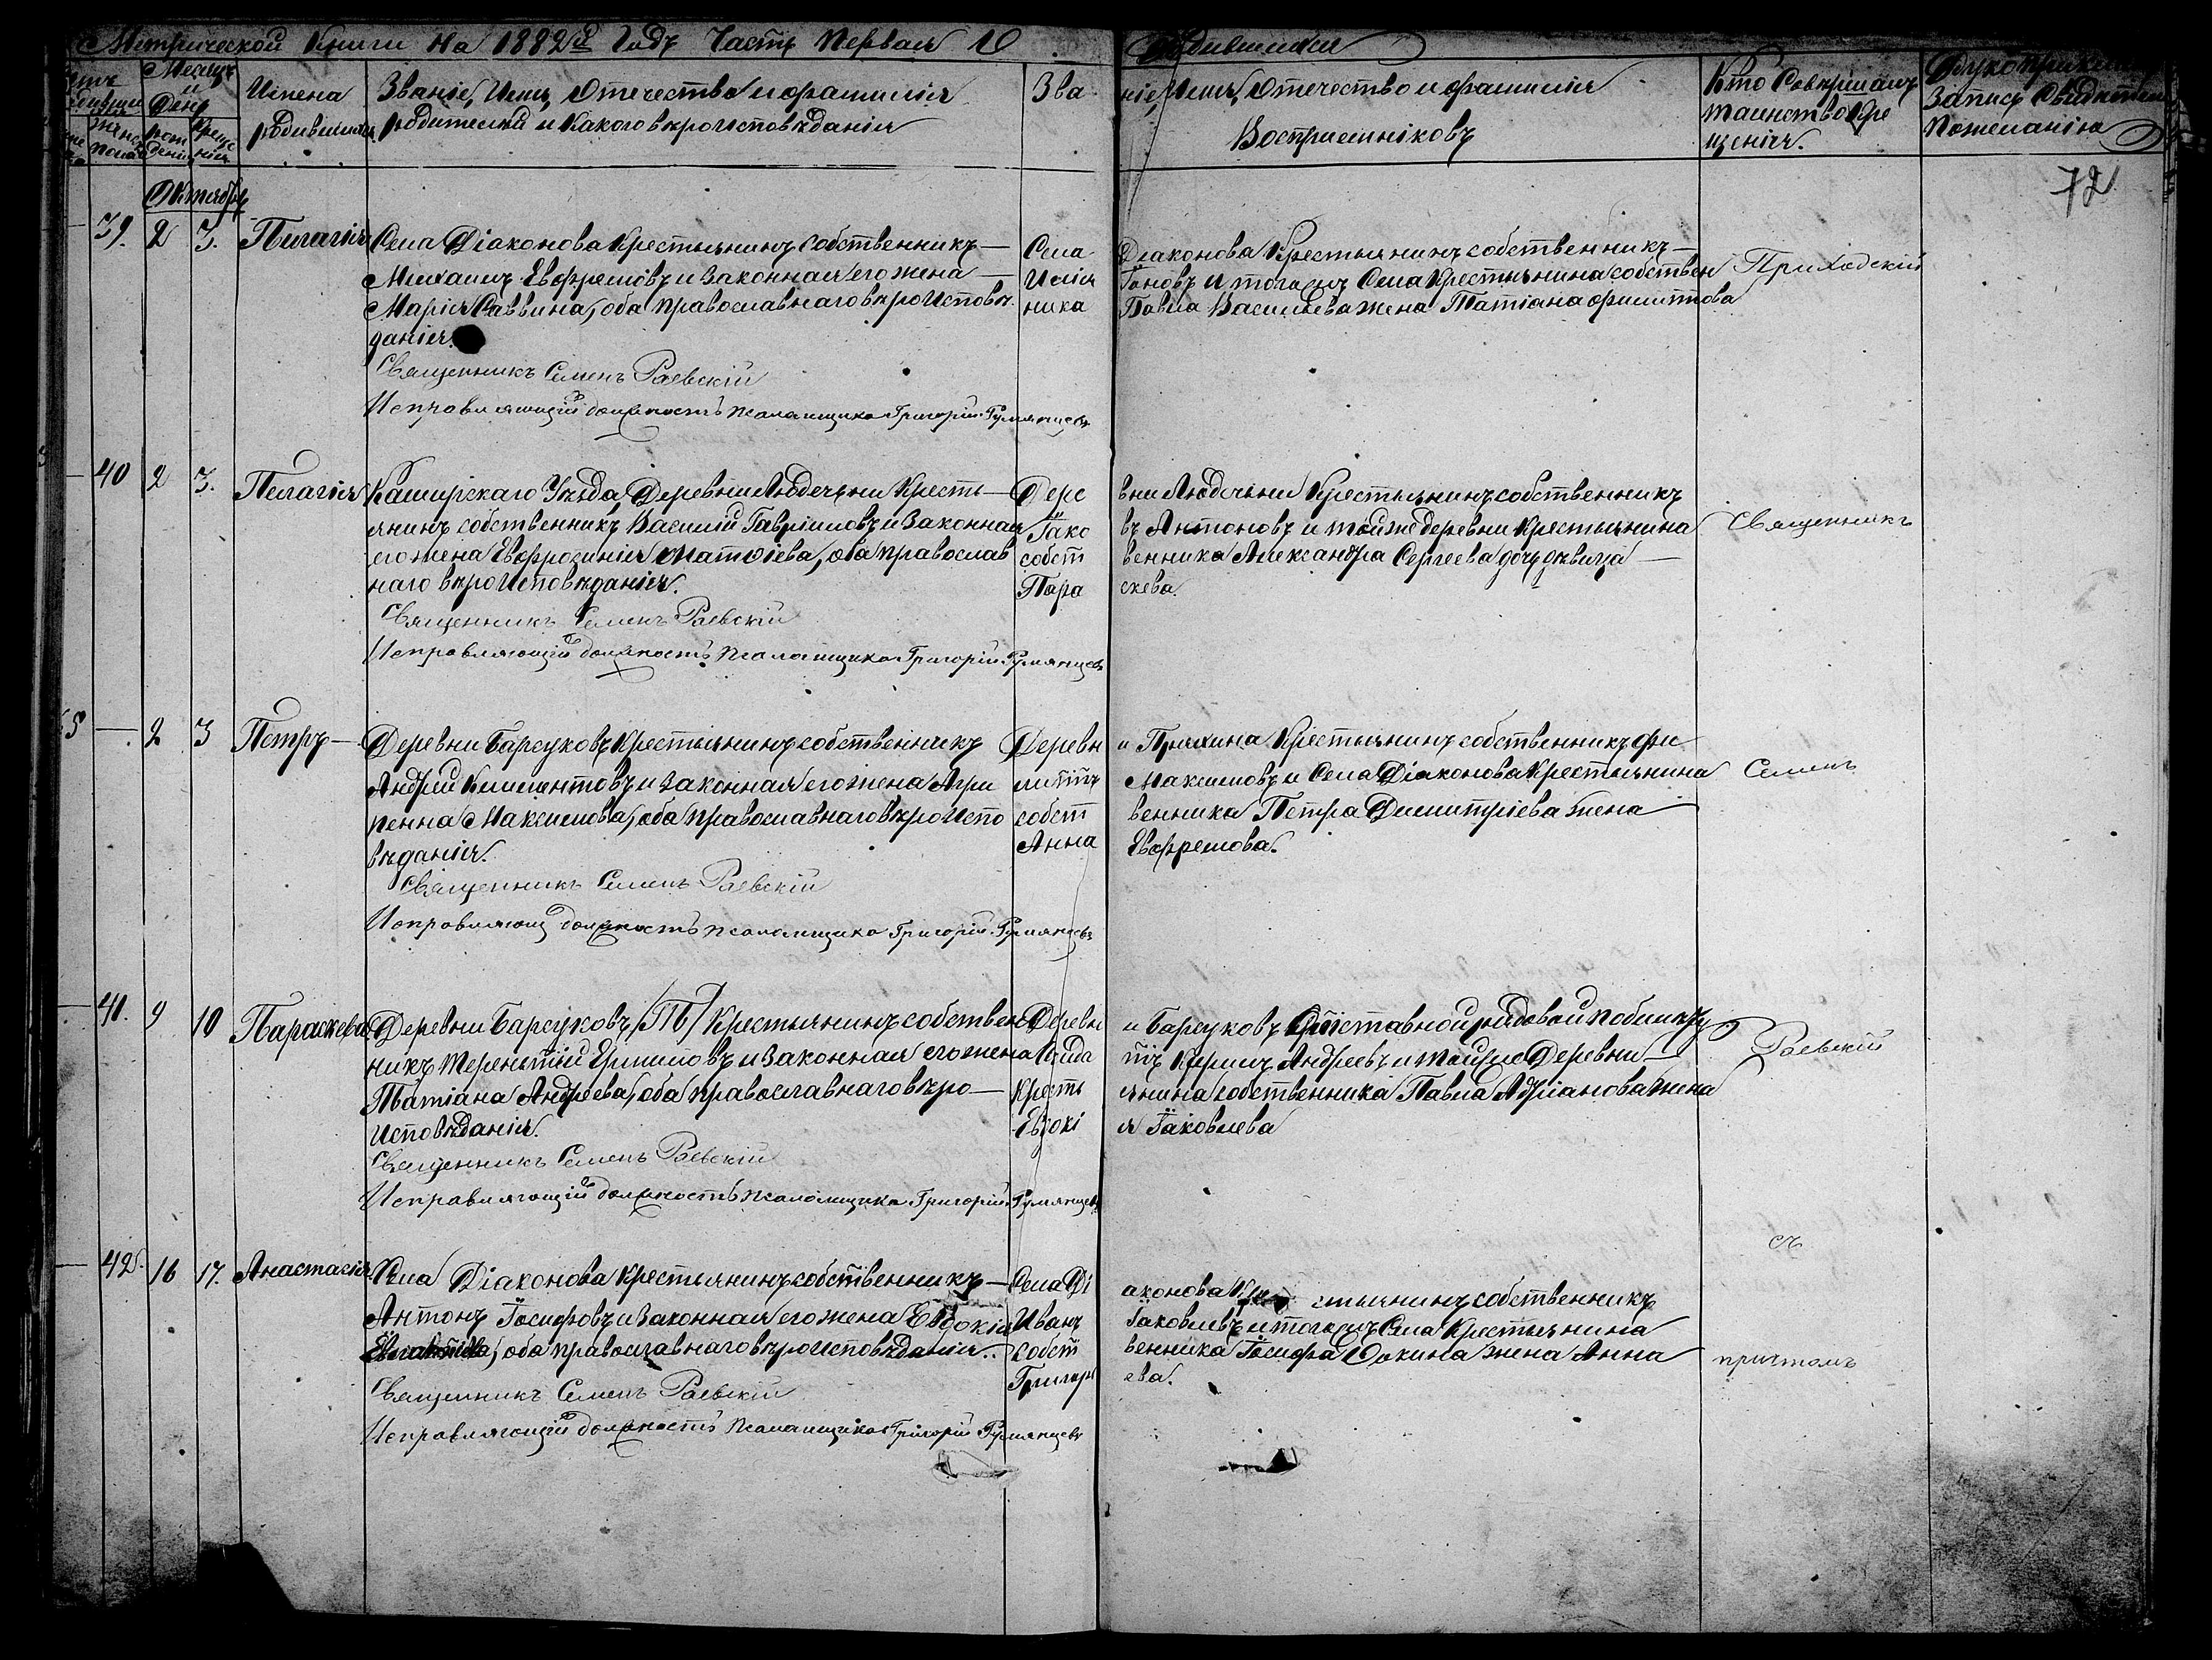 Метрической Книги на 1882й Годъ Часть Первая О Родившихся
Месяцъ и День
рождения
Креще нія
женска полъ
Имена родившихся
Званіе, Имя, Отечество и фамилія
родителей и Какого вѣроисповѣданія
Званіе, Имя, Отечество и фамилія
Воспріемніковъ
Кто Совершалъ
таинство Кре
щенія.
Запись Свидѣтелей
По желанію
72
Октябрь
39. 2 3. Пелагія
Села Діаконова Крестьянинъ собственникъ
Михаилъ Евфремовъ и Законная его жена
Марія Саввина, оба православнаго вѣроисповѣ
данія.
Священникъ Семенъ Раевскій
Исправляющій должность псаломщика Григорій Румянцевъ
Села Діаконова Крестьянинъ собственникъ
Илія Гановъ и тогожъ Села Крестьянина собствен
ника Павла Васильева жена Татіана филиппова
Приходскій
40 2 3. Пелагія
Каширскаго Уѣзда, Деревни Любечини Кресть
янинъ собственникъ Василій Гавріиловъ и Законная
его жена Евфросинія Матѳіева, оба православ
наго вѣроисповѣданія.
Священникъ Семенъ Раевскій
Исправляющій должность псаломщика Григорій Румянцевъ
Деревни Любечини Крестьянинъ собственникъ
Іаковъ Антоновъ и тойже деревни Крестьянина
собственника Александра Сергеева дочь дѣвица
Параскева.
Священникъ
5 — 2 3 Петръ
Деревни Барсуковъ Крестьянинъ собственникъ
Андрей Климентовъ и Законная его жена Агри
пенна Максимова, оба православнаго вѣроиспо
вѣданія.
Священникъ Семенъ Раевскій
Исправляющ должность псаломщика Григорій Румянцевъ
Деревни Пряхина Крестьянинъ собственникъ фи
липпъ Максимовъ и Села Діаконова Крестьянина
собственника Петра Димитріева жена
Анна Евфремова.
Семенъ
41. 9 10 Параскева
Деревни Барсуковъ /ТБ/ Крестьянинъ собствен
никъ Терентій Ермиловъ и Законная его жена
Татіана Андреева, оба православнаго вѣро
исповѣданія.
Священникъ Семенъ Раевскій
Исправляющій должность псаломщика Григорій Румянцевъ
Деревни Барсуковъ рядовой
Кирилъ Андреевъ и тойже Деревни
Крестьянина собственника Павла Адріанова жена
Евдокія Іаковлева
Раевскій
42. 16 17. Анастасія
Села Діаконова Крестьянинъ собственникъ
Антонъ Іосифовъ и Законная его жена Евдокія
оба православнаго вѣроисповѣданія.
Священникъ Семенъ Раевскій
Исправляющій должность псаломщика Григорій Румянцевъ
Села Діаконова Крестьянинъ собственникъ
Иванъ Іаковлевъ и тогожъ Села Крестьянина
собственника Іосифа жена Анна
Григорьева.
съ
причтомъ